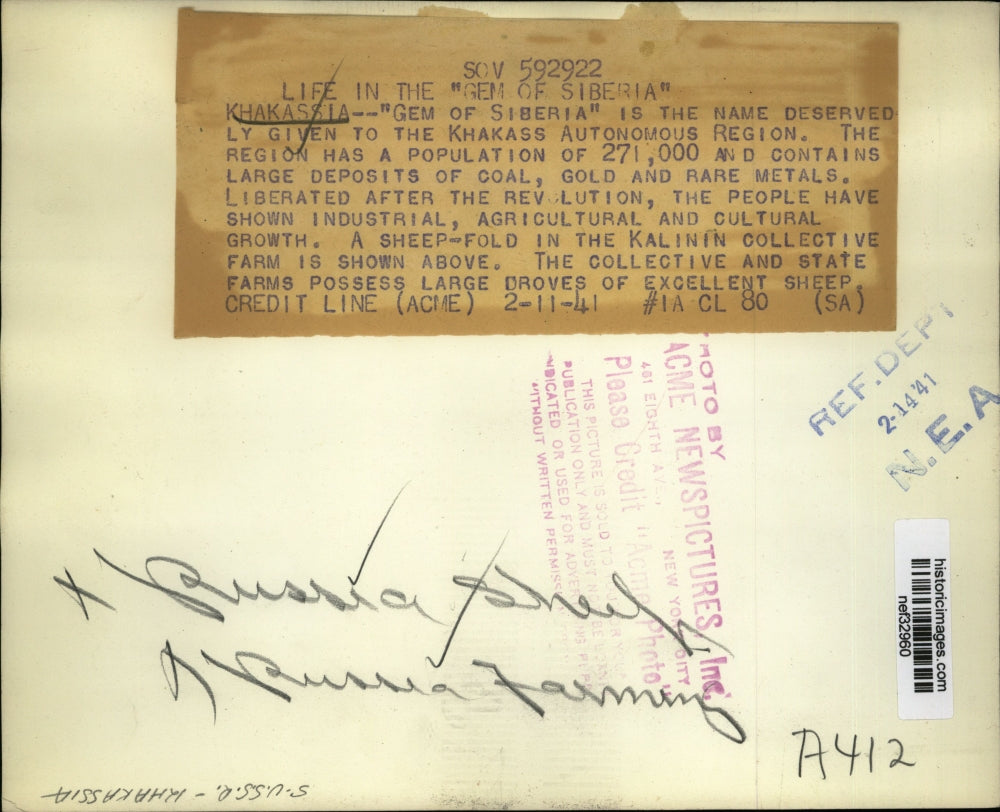 SOV 592922
LIFE IN THE "GEM OF SIBERIA"
KHAKASSIA--"GEM OF SIBERIA" IS THE NAME DESERVED
LY GIVEN TO THE KHAKASS AUTONOMOUS REGION. THE
REGION HAS A POPULATION OF 271,000 AND CONTAINS
LARGE DEPOSITS OF COAL, GOLD AND RARE METALS.
LIBERATED AFTER THE REV LUTION, THE PEOPLE HAVE
SHOWN INDUSTRIAL, AGRICULTURAL AND CULTURAL
GROWTH. A SHEEP-FOLD IN THE KALININ COLLECTIVE
FARM IS SHOWN ABOVE. THE COLLECTIVE AND STATE
FARMS POSSESS LARGE DROVES OF EXCELLENT SHEEP.
CREDIT LINE (ACME) 2-11-41 #1A CL 80 (SA)
PHOTO BY
ACME NEWSPICTURES, Inc.
461 EIGHTH AV., NEW YORK CITY
Please Credit "Acme Photo"
THIS PICTURE IS SOLD TO YOU FOR YOUR
PUBLICATION ONLY AND MUST NOT BE
INDICATED OR USED FOR ADVERTISING
WITHOUT WRITTEN PERMISSION
REF. DEPT
2-14'41
N.E.A
historicimages.com
nef32960
x Russia Sheep
x Russia Farming
A412
S-U.S.S.R. - KHAKASSIA